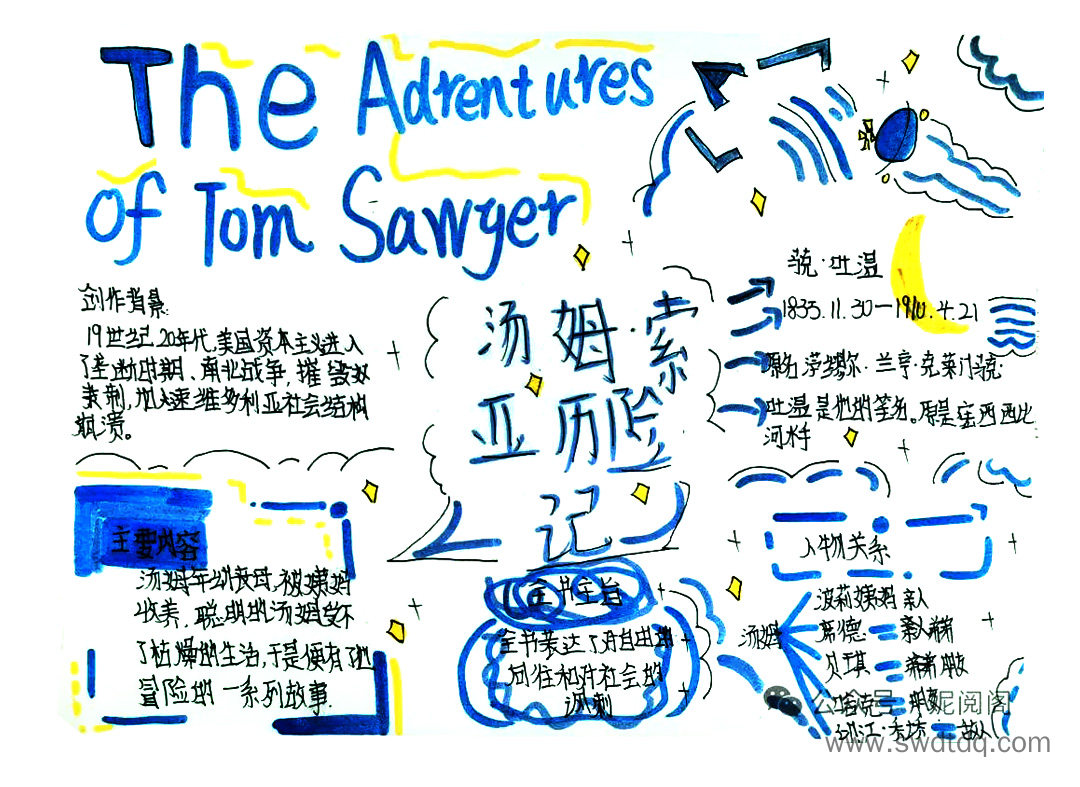 The Adrentures
of Tom Sawyer
创作背景:
19世纪20年代,美国资本主义进入
了垄断时期、南北战争,摧毁奴
隶制,加速维多利亚社会结构
崩溃。
汤姆·索
亚历险
记
·吐温
1835.11.30—1910.4.21
原名 萨缪尔·兰亨·克莱门
吐温是他的笔名。原是密西西比
河水手
主要内容
汤姆年幼丧母,被姨妈
收养,聪明的汤姆受不
了枯燥的生活,于是便有了他
冒险的一系列故事.
全书主旨
全书表达了对自由的
向往和对社会的
讽刺
人物关系
汤姆
波莉姨妈 亲人
席德
贝琪
哈克
公众号·妮阅阁
www.swdtdq.com